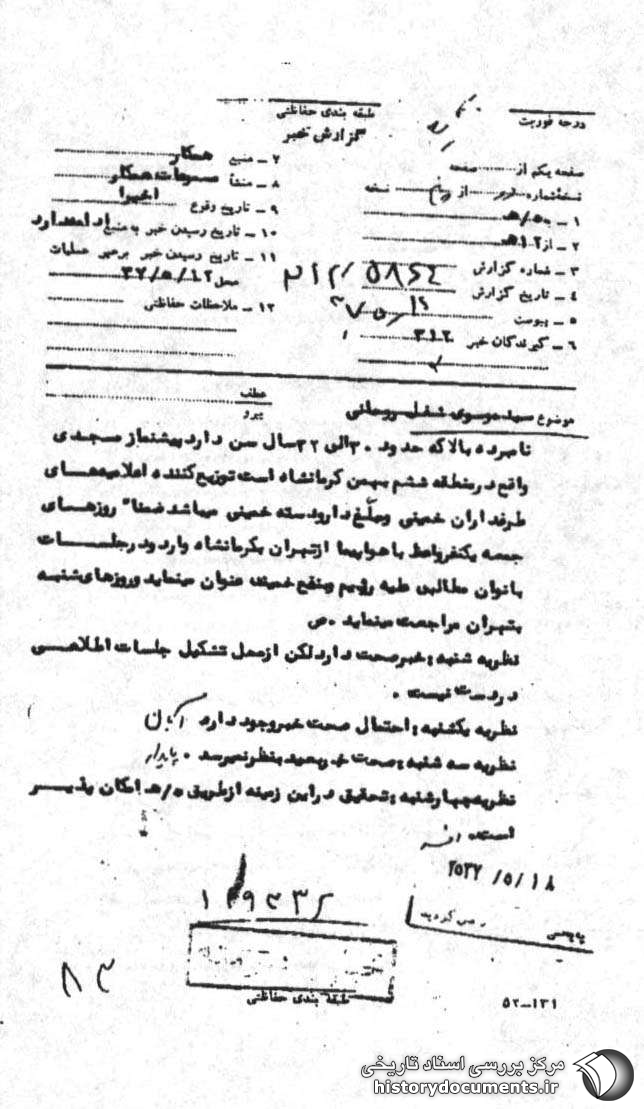 طبقه بندی حفاظتی
گزارش خبر
درجه فوریت
صفحه یکم از صفحه
نسخه شماره از نسخه
۱ – به ۵/ه
۲ – از ۱۲ه
۳ – شماره گزارش
۴ – تاریخ گزارش
۵ – پیوست
۶ – گیرندگان خبر ۳۱۲
۷ – منبع همکار
۸ – منشأ مسموعات همکار
۹ – تاریخ وقوع اخیرا
۱۰ – تاریخ رسیدن خبر به منبع
۱۱ – تاریخ رسیدن خبر برهبر عملیات
محل ۳۷/۵/۱۲
۱۲ – ملاحظات حفاظتی
موضوع سید موسوی شغل روحانی
عطف
پیرو
نامبرده بالا که حدود ۳۰ الی ۳۲ سال سن دارد پیشنماز مسجدی
واقع در منطقه ششم بهمن کرمانشاه است توزیع کننده اعلامیه های
طرفداران خمینی و مبلغ دارودسته خمینی میباشد ضمنا" روزهای
جمعه یکنفر واعظ با هواپیما از تهران بکرمانشاه وارد و در جلسات
بانوان مطالبی علیه رژیم و بنفع خمینی عنوان مینماید و روزهای شنبه
بتهران مراجعت مینماید . ص
نظریه شنبه : خبر صحت دارد لکن از محل تشکیل جلسات اطلاعی
در دست نیست .
نظریه یکشنبه : احتمال صحت خبر وجود دارد
نظریه سه شنبه : صحت خبر بعید بنظر نمیرسد . پایدار
نظریه چهارشنبه : تحقیق در این زمینه از طریق ۵/ه امکان پذیر
است.
۲۵۳۷/۵/۱۸
طبقه بندی حفاظتی
۸۳
۵۲-۱۳۱
مرکز بررسی اسناد تاریخی
historydocuments.ir